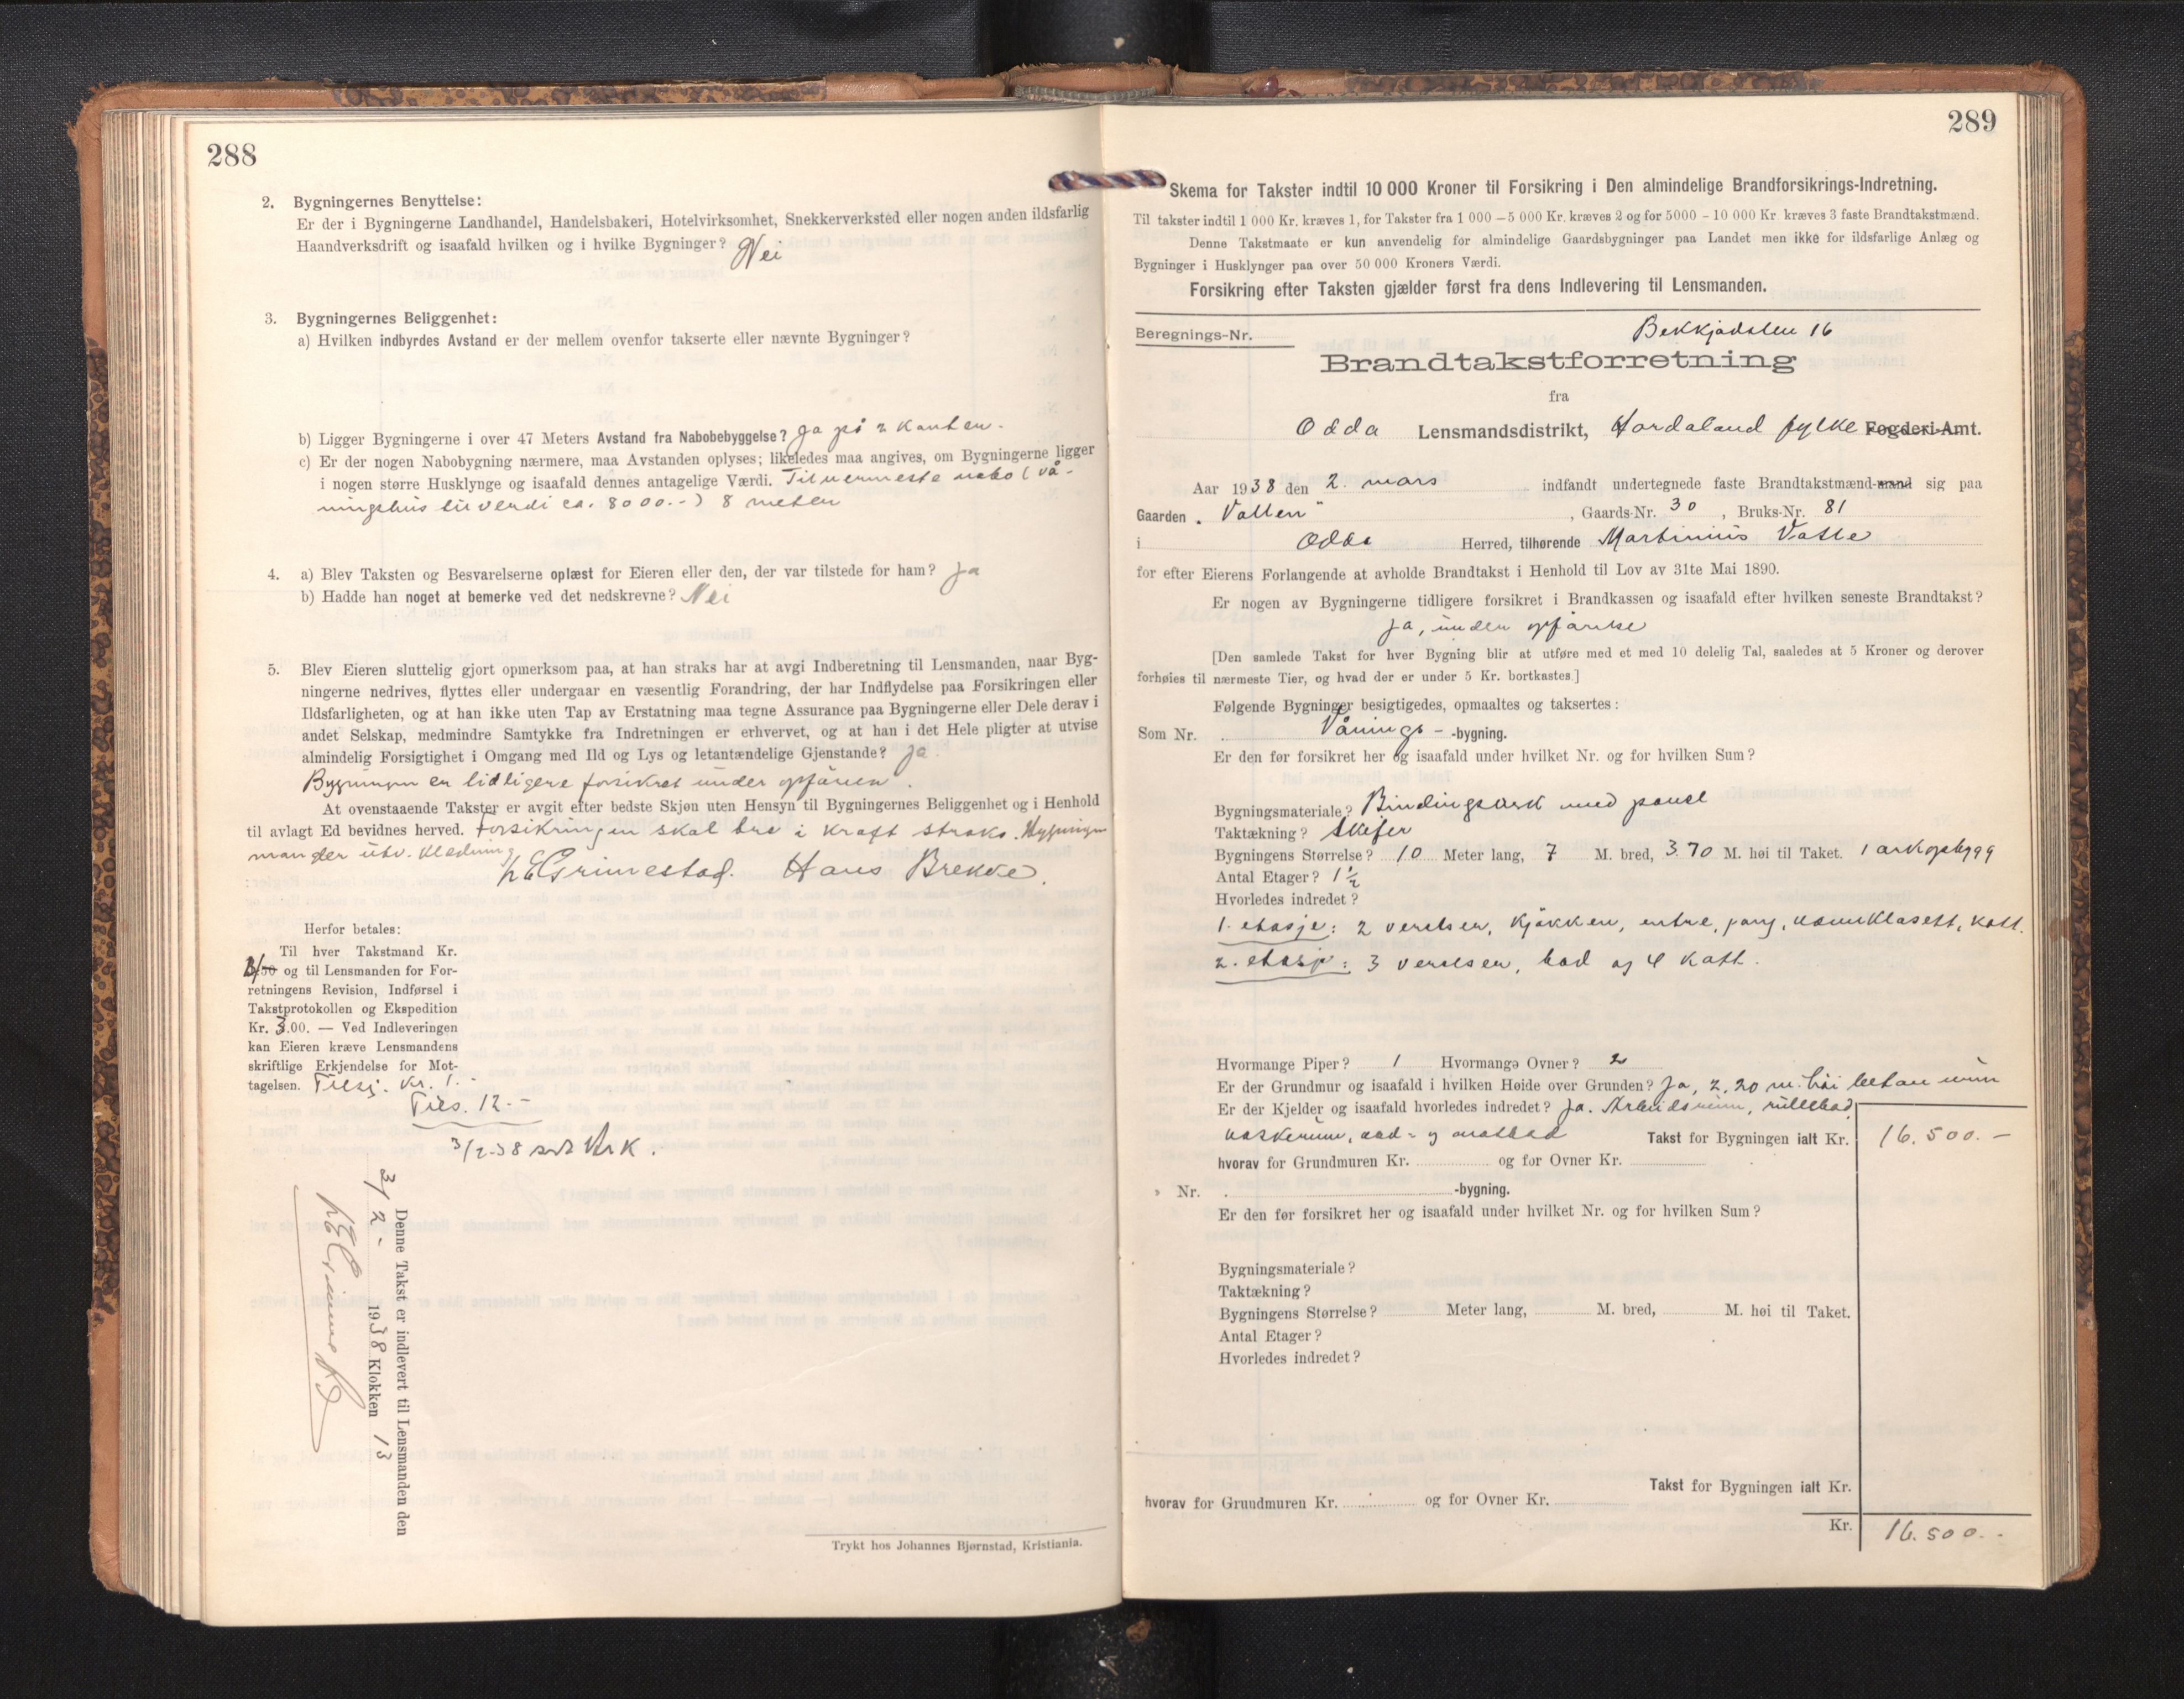 288
2. Bygningernes Benyttelse:
Er der i Bygningerne Landhandel, Handelsbakeri, Hotelvirksomhet, Snekkerverksted eller nogen anden ildsfarlig
Haandverksdrift og isaafald hvilken og i hvilke Bygninger? Nei
3. Bygningernes Beliggenhet:
a) Hvilken indbyrdes Avstand er der mellem ovenfor takserte eller nævnte Bygninger?
b) Ligger Bygningerne i over 47 Meters Avstand fra Nabobebyggelse? Ja på 2 kanter.
c) Er der nogen Nabobygning nærmere, maa Avstanden oplyses; likeledes maa angives, om Bygningerne ligger
i nogen større Husklynge og isaafald dennes antagelige Værdi. Til nermeste nabo (vå-
ningshus til verdi ca. 8000.-) 8 meter
4. a) Blev Taksten og Besvarelserne oplæst for Eieren eller den, der var tilstede for ham? Ja
b) Hadde han noget at bemerke ved det nedskrevne? Nei
5. Blev Eieren sluttelig gjort opmerksom paa, at han straks har at avgi Indberetning til Lensmanden, naar Byg-
ningerne nedrives, flyttes eller undergaar en væsentlig Forandring, der har Indflydelse paa Forsikringen eller
Ildsfarligheten, og at han ikke uten Tap av Erstatning maa tegne Assurance paa Bygningerne eller Dele derav i
andet Selskap, medmindre Samtykke fra Indretningen er erhvervet, og at han i det Hele pligter at utvise
almindelig Forsigtighet i Omgang med Ild og Lys og letantændelige Gjenstande? Ja
Bygningen er tidligere forsikret under opførsel.
At ovenstaaende Takster er avgit efter bedste Skjøn uten Hensyn til Bygningernes Beliggenhet og i Henhold
til avlagt Ed bevidnes herved. Forsikringen skal tre i kraft straks. Bygningen
mangler utv. kledning
Grimestad. Hans Brekke.
Herfor betales:
Til hver Takstmand Kr.
og til Lensmanden for For-
retningens Revision, Indførsel i
Takstprotokollen og Ekspedition
Kr. 3.00. — Ved Indleveringen
kan Eieren kræve Lensmandens
skriftlige Erkjendelse for Mot-
tagelsen. Tilsj. Kr. 1.-
Tils. 12.-
3/2-38
Denne Takst er indlevert til Lensmanden den
3/2- 1938 Klokken 13
Trykt hos Johannes Bjørnstad, Kristiania.
289
Skema for Takster indtil 10 000 Kroner til Forsikring i Den almindelige Brandforsikrings-Indretning.
Til takster indtil 1 000 Kr. kræves 1, for Takster fra 1 000 – 5 000 Kr. kræves 2 og for 5000 - 10 000 Kr. kræves 3 faste Brandtakstmænd.
Denne Takstmaate er kun anvendelig for almindelige Gaardsbygninger paa Landet men ikke for ildsfarlige Anlæg og
Bygninger i Husklynger paa over 50 000 Kroners Værdi.
Forsikring efter Taksten gjælder først fra dens Indlevering til Lensmanden.
Beregnings-Nr.
16
Brandtakstforretning
fra
Odda Lensmandsdistrikt, Hordaland fylke Fogderi-Amt.
Aar 1938 den 2. mars indfandt undertegnede faste Brandtakstmænd-mand sig paa
Gaarden "Vatten", Gaards-Nr. 30, Bruks-Nr. 81
i Odda Herred, tilhørende Martinius Vatle
for efter Eierens Forlangende at avholde Brandtakst i Henhold til Lov av 31te Mai 1890.
Er nogen av Bygningerne tidligere forsikret i Brandkassen og isaafald efter hvilken seneste Brandtakst?
Ja, under opførelse
[Den samlede Takst for hver Bygning blir at utføre med et med 10 delelig Tal, saaledes at 5 Kroner og derover
forhøies til nærmeste Tier, og hvad der er under 5 Kr. bortkastes.]
Følgende Bygninger besigtigedes, opmaaltes og taksertes:
Som Nr. Vånings- -bygning.
Er den før forsikret her og isaafald under hvilket Nr. og for hvilken Sum?
Bygningsmateriale? Bindingsverk med panel
Taktækning? Skifer
Bygningens Størrelse? 10 Meter lang, 7 M. bred, 3.70 M. høi til Taket. 1 arkopbygg
Antal Etager? 1 1/2
Hvorledes indret? 
1. etasje: 2 verelser, kjøkken, entre, gang, vannklosett, kott.
2. etasje: 3 verelser, bad og 4 kott.
Hvormange Piper? 1 Hvormange Ovner? 2
Er der Grundmur og isaafald i hvilken Høide over Grunden? Ja, 2,20 m. høi betonmur
Er der Kjelder og isaafald hvorledes indredet? Ja. Arbeidsrum, rullebod,
vaskerum, ved- og matbod Takst for Bygningen ialt Kr. 16.500.-
hvorav for Grundmuren Kr. og for Ovner Kr.
" Nr. -bygning.
Er den før forsikret her og isaafald under hvilket Nr. og for hvilken Sum?
Bygningsmateriale?
Taktækning?
Bygningens Størrelse? Meter lang, M. bred, M. høi til Taket.
Antal Etager?
Hvorledes indredet?
Takst for Bygningen ialt Kr.
hvorav for Grundmuren Kr. og for Ovner Kr.
Kr. 16.500.-